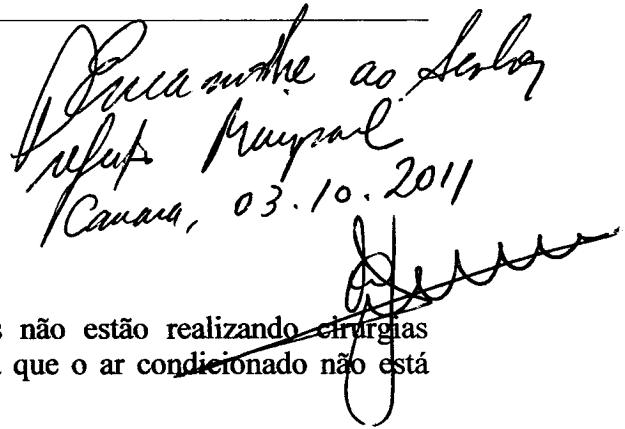 Encaminhe ao Senhor
Prefeito Municipal
Camara, 03.10.2011
não estão realizando cirurgias
que o ar condicionado não está